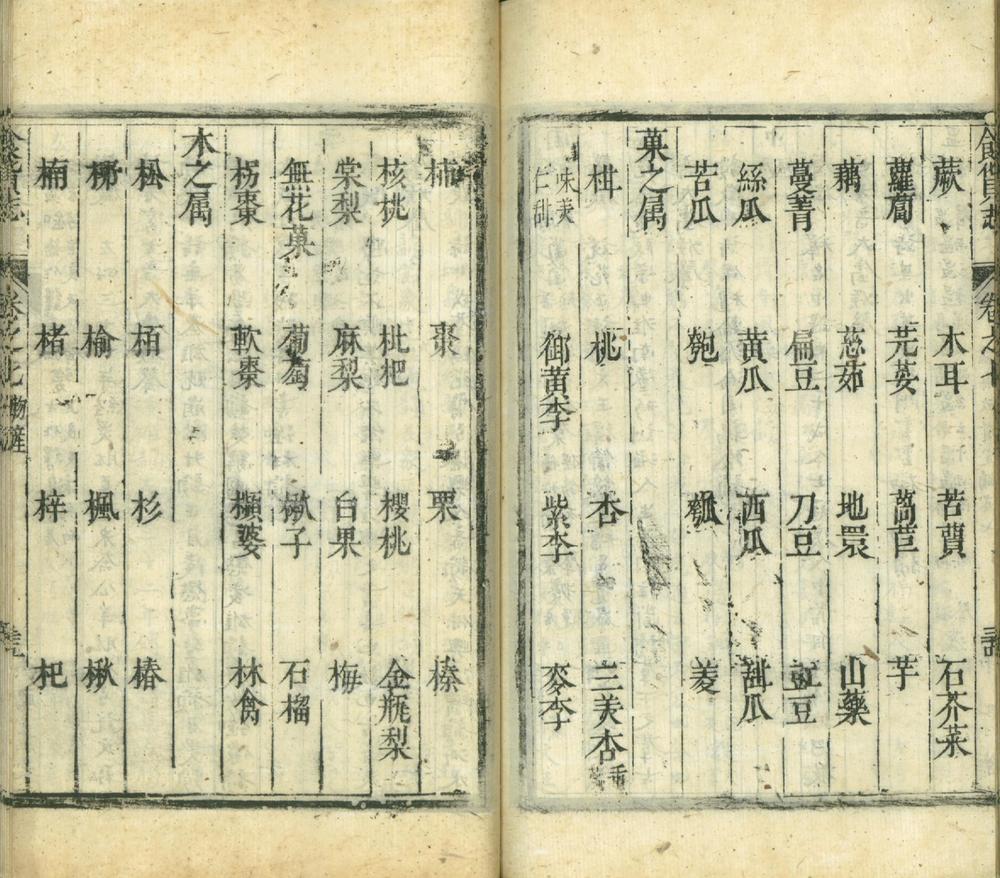 蕨 木耳 苦蕒 石芥菜
蘿蔔 芫荽 萵苣 芋
藕 慈茹 地環 山藥
蔓菁 扁豆 刀豆 豇豆
絲瓜 黃瓜 西瓜 甜瓜
苦瓜 匏 瓠 菱
菓之属
桃 杏 三美杏
味美仁甜 御黃李 紫李 麥李
柿 棗 栗 榛
核桃 枇杷 櫻桃 金瓶梨
棠梨 麻梨 白果 梅
無花菓 葡萄 橄子 石榴
柺棗 軟棗 蘋婆 林禽
木之属
松 栢 杉 椿
榆 楓 楸
楠 楮 梓 杞
食貨志 卷之七 物産